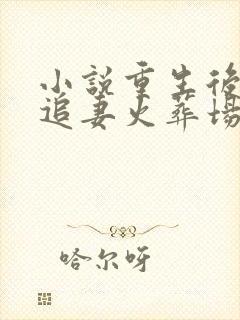 小說重生後
追妻火葬場
哈尔呀